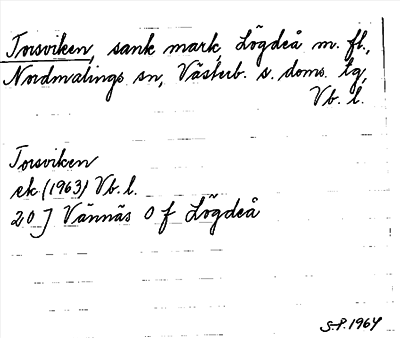 Torsviken, sank mark, Lögdeå m. fl.,
Nordmalings sn, Västerb. s. doms. tg,
Vb. l.
Torsviken
ek (1963) Vb. l.
20 J Vännäs 0 f Lögdeå
S.P. 1964